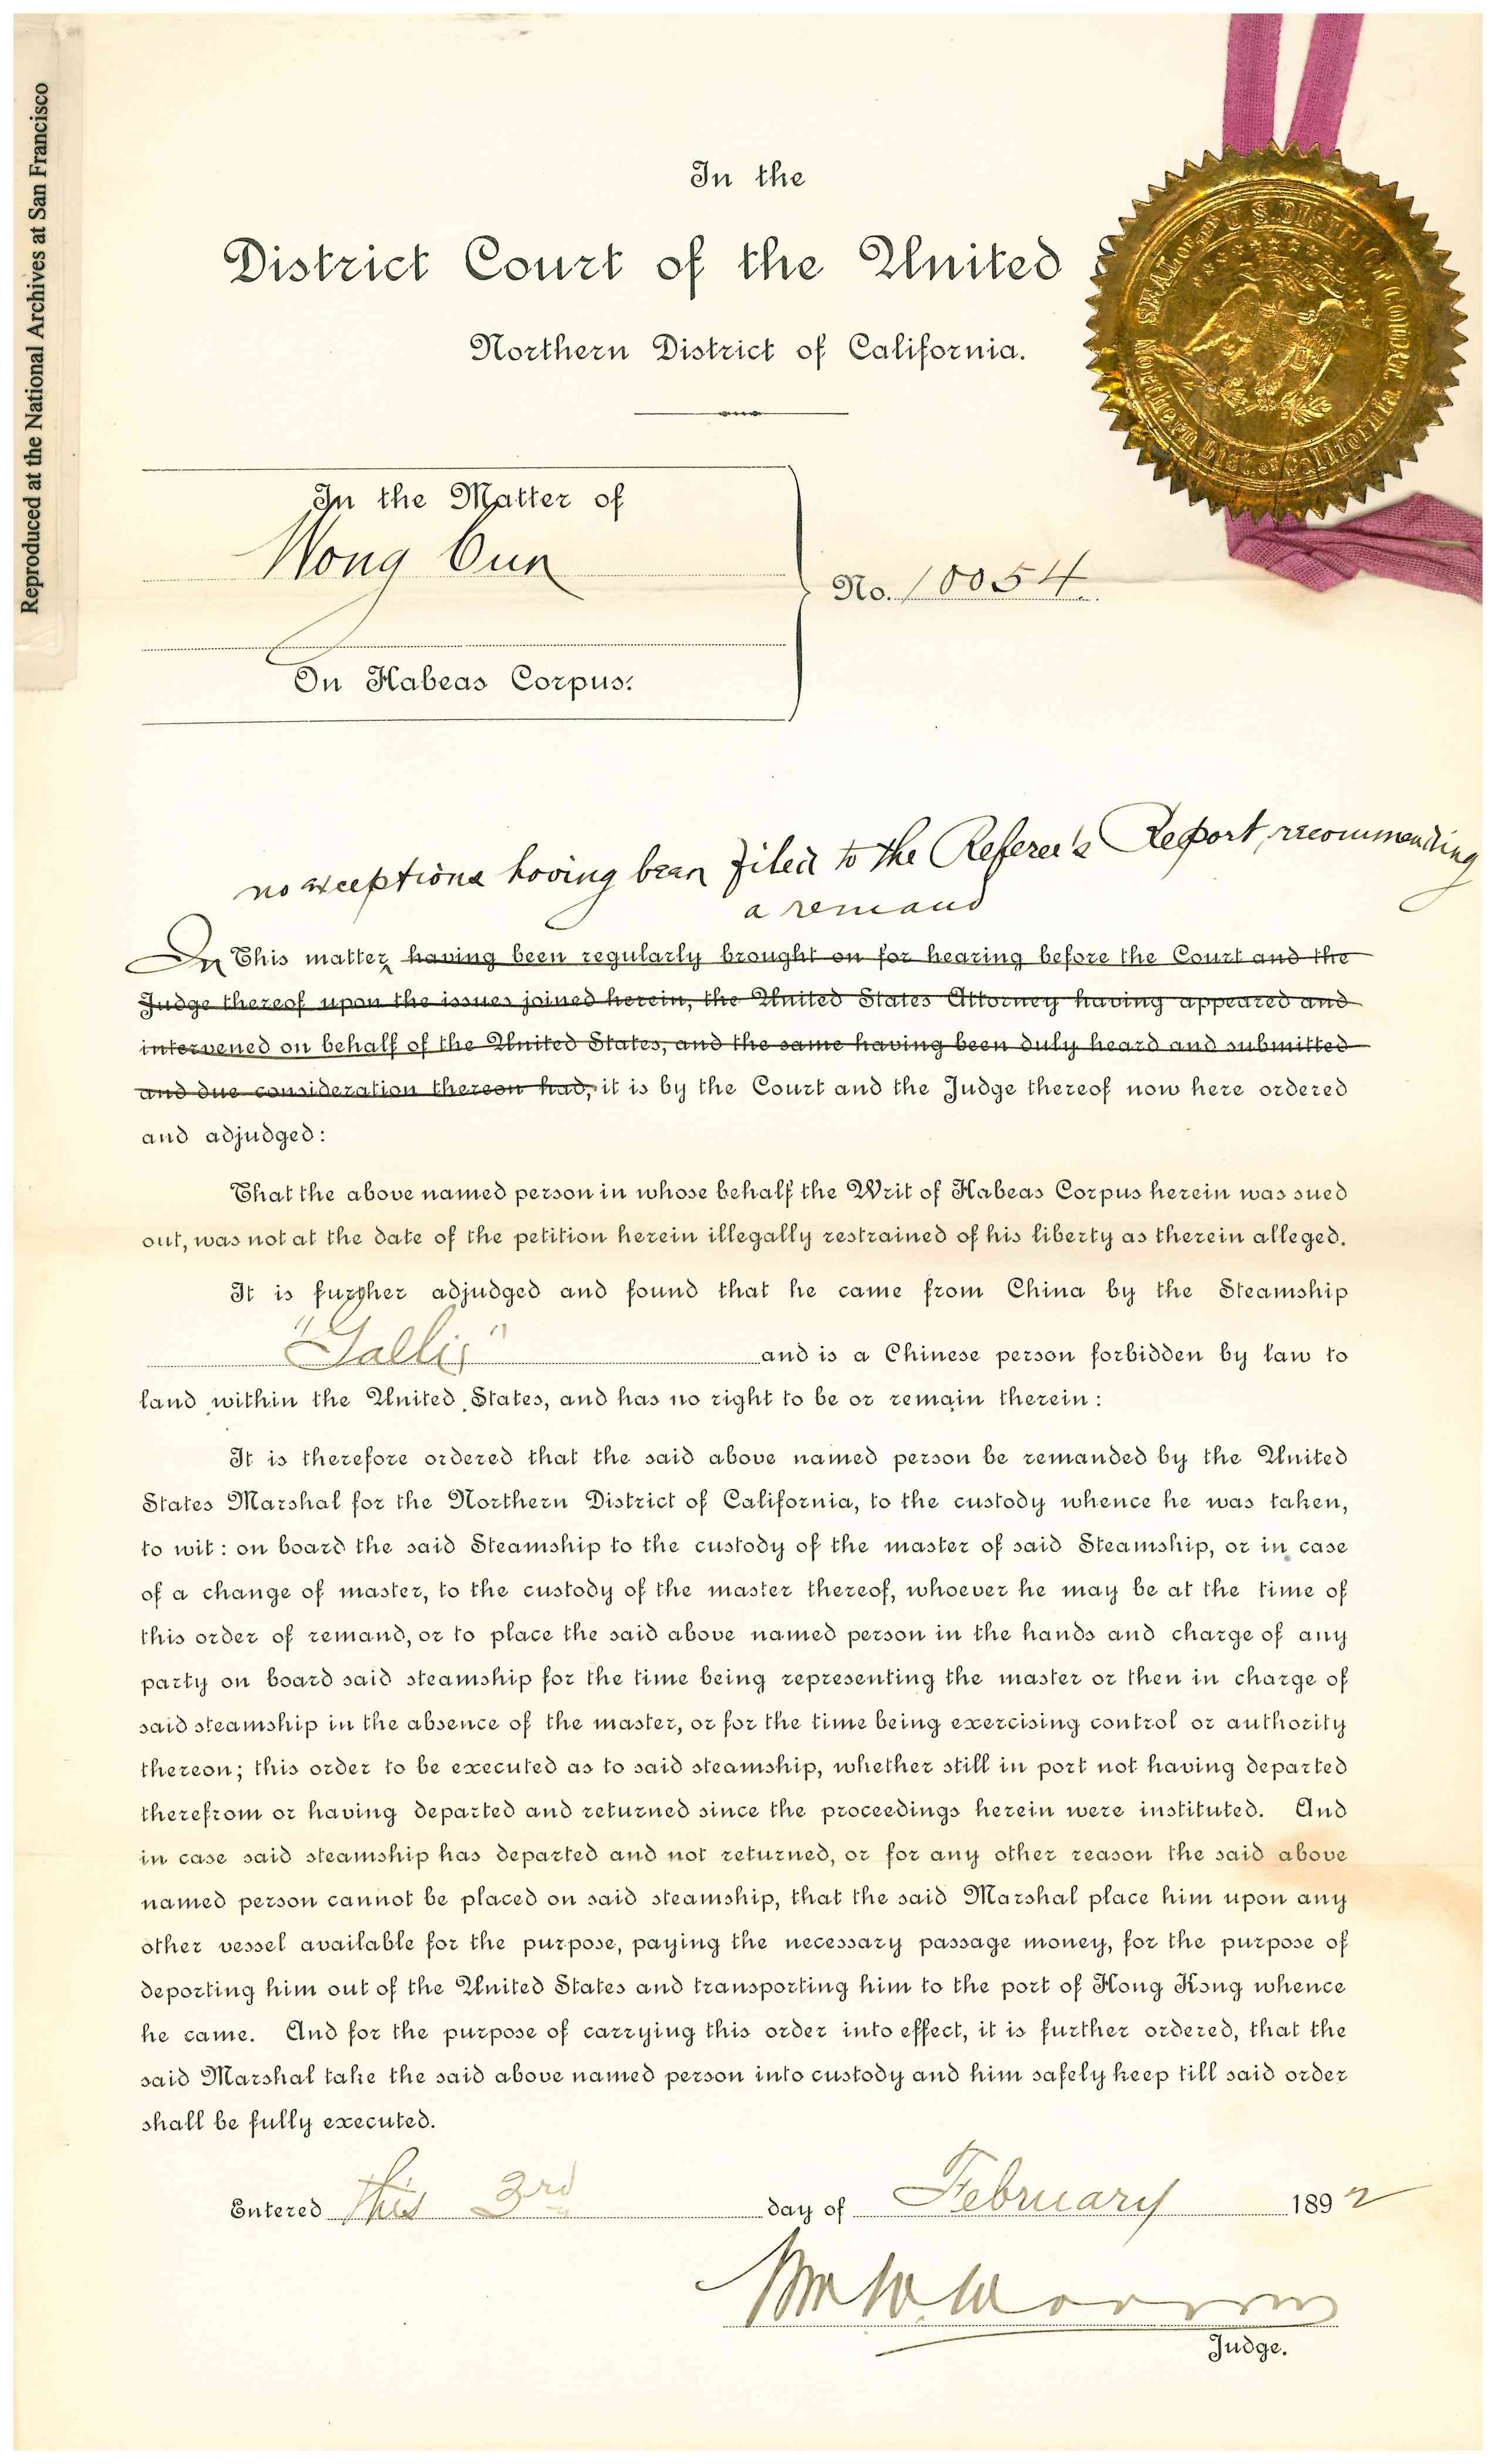 Reproduced at the National Archives at San Francisco
In the
District Court of the United S
SEAL OF THE U.S. DISTRICT COURT
Northern Dist. of California
Northern District of California.
In the Matter of
Wong Cun
No. 10054.
On Habeas Corpus.
no exceptions having been filed to the Referee's Report, recommending
a remand
In This matter, having been regularly brought on for hearing before the Court and the
Judge thereof upon the issues joined herein, the United States Attorney having appeared and
intervened on behalf of the United States, and the same having been duly heard and submitted
and due consideration thereon had, it is by the Court and the Judge thereof now here ordered
and adjudged:
That the above named person in whose behalf the Writ of Habeas Corpus herein was sued
out, was not at the date of the petition herein illegally restrained of his liberty as therein alleged.
It is further adjudged and found that he came from China by the Steamship
"Gallic" and is a Chinese person forbidden by law to
land within the United States, and has no right to be or remain therein:
It is therefore ordered that the said above named person be remanded by the United
States Marshal for the Northern District of California, to the custody whence he was taken,
to wit: on board the said Steamship to the custody of the master of said Steamship, or in case
of a change of master, to the custody of the master thereof, whoever he may be at the time of
this order of remand, or to place the said above named person in the hands and charge of any
party on board said steamship for the time being representing the master or then in charge of
said steamship in the absence of the master, or for the time being exercising control or authority
thereon; this order to be executed as to said steamship, whether still in port not having departed
therefrom or having departed and returned since the proceedings herein were instituted. And
in case said steamship has departed and not returned, or for any other reason the said above
named person cannot be placed on said steamship, that the said Marshal place him upon any
other vessel available for the purpose, paying the necessary passage money, for the purpose of
deporting him out of the United States and transporting him to the port of Hong Kong whence
he came. And for the purpose of carrying this order into effect, it is further ordered, that the
said Marshal take the said above named person into custody and him safely keep till said order
shall be fully executed.
Entered this 3rd day of February 1892
Wm W Morrow
Judge.